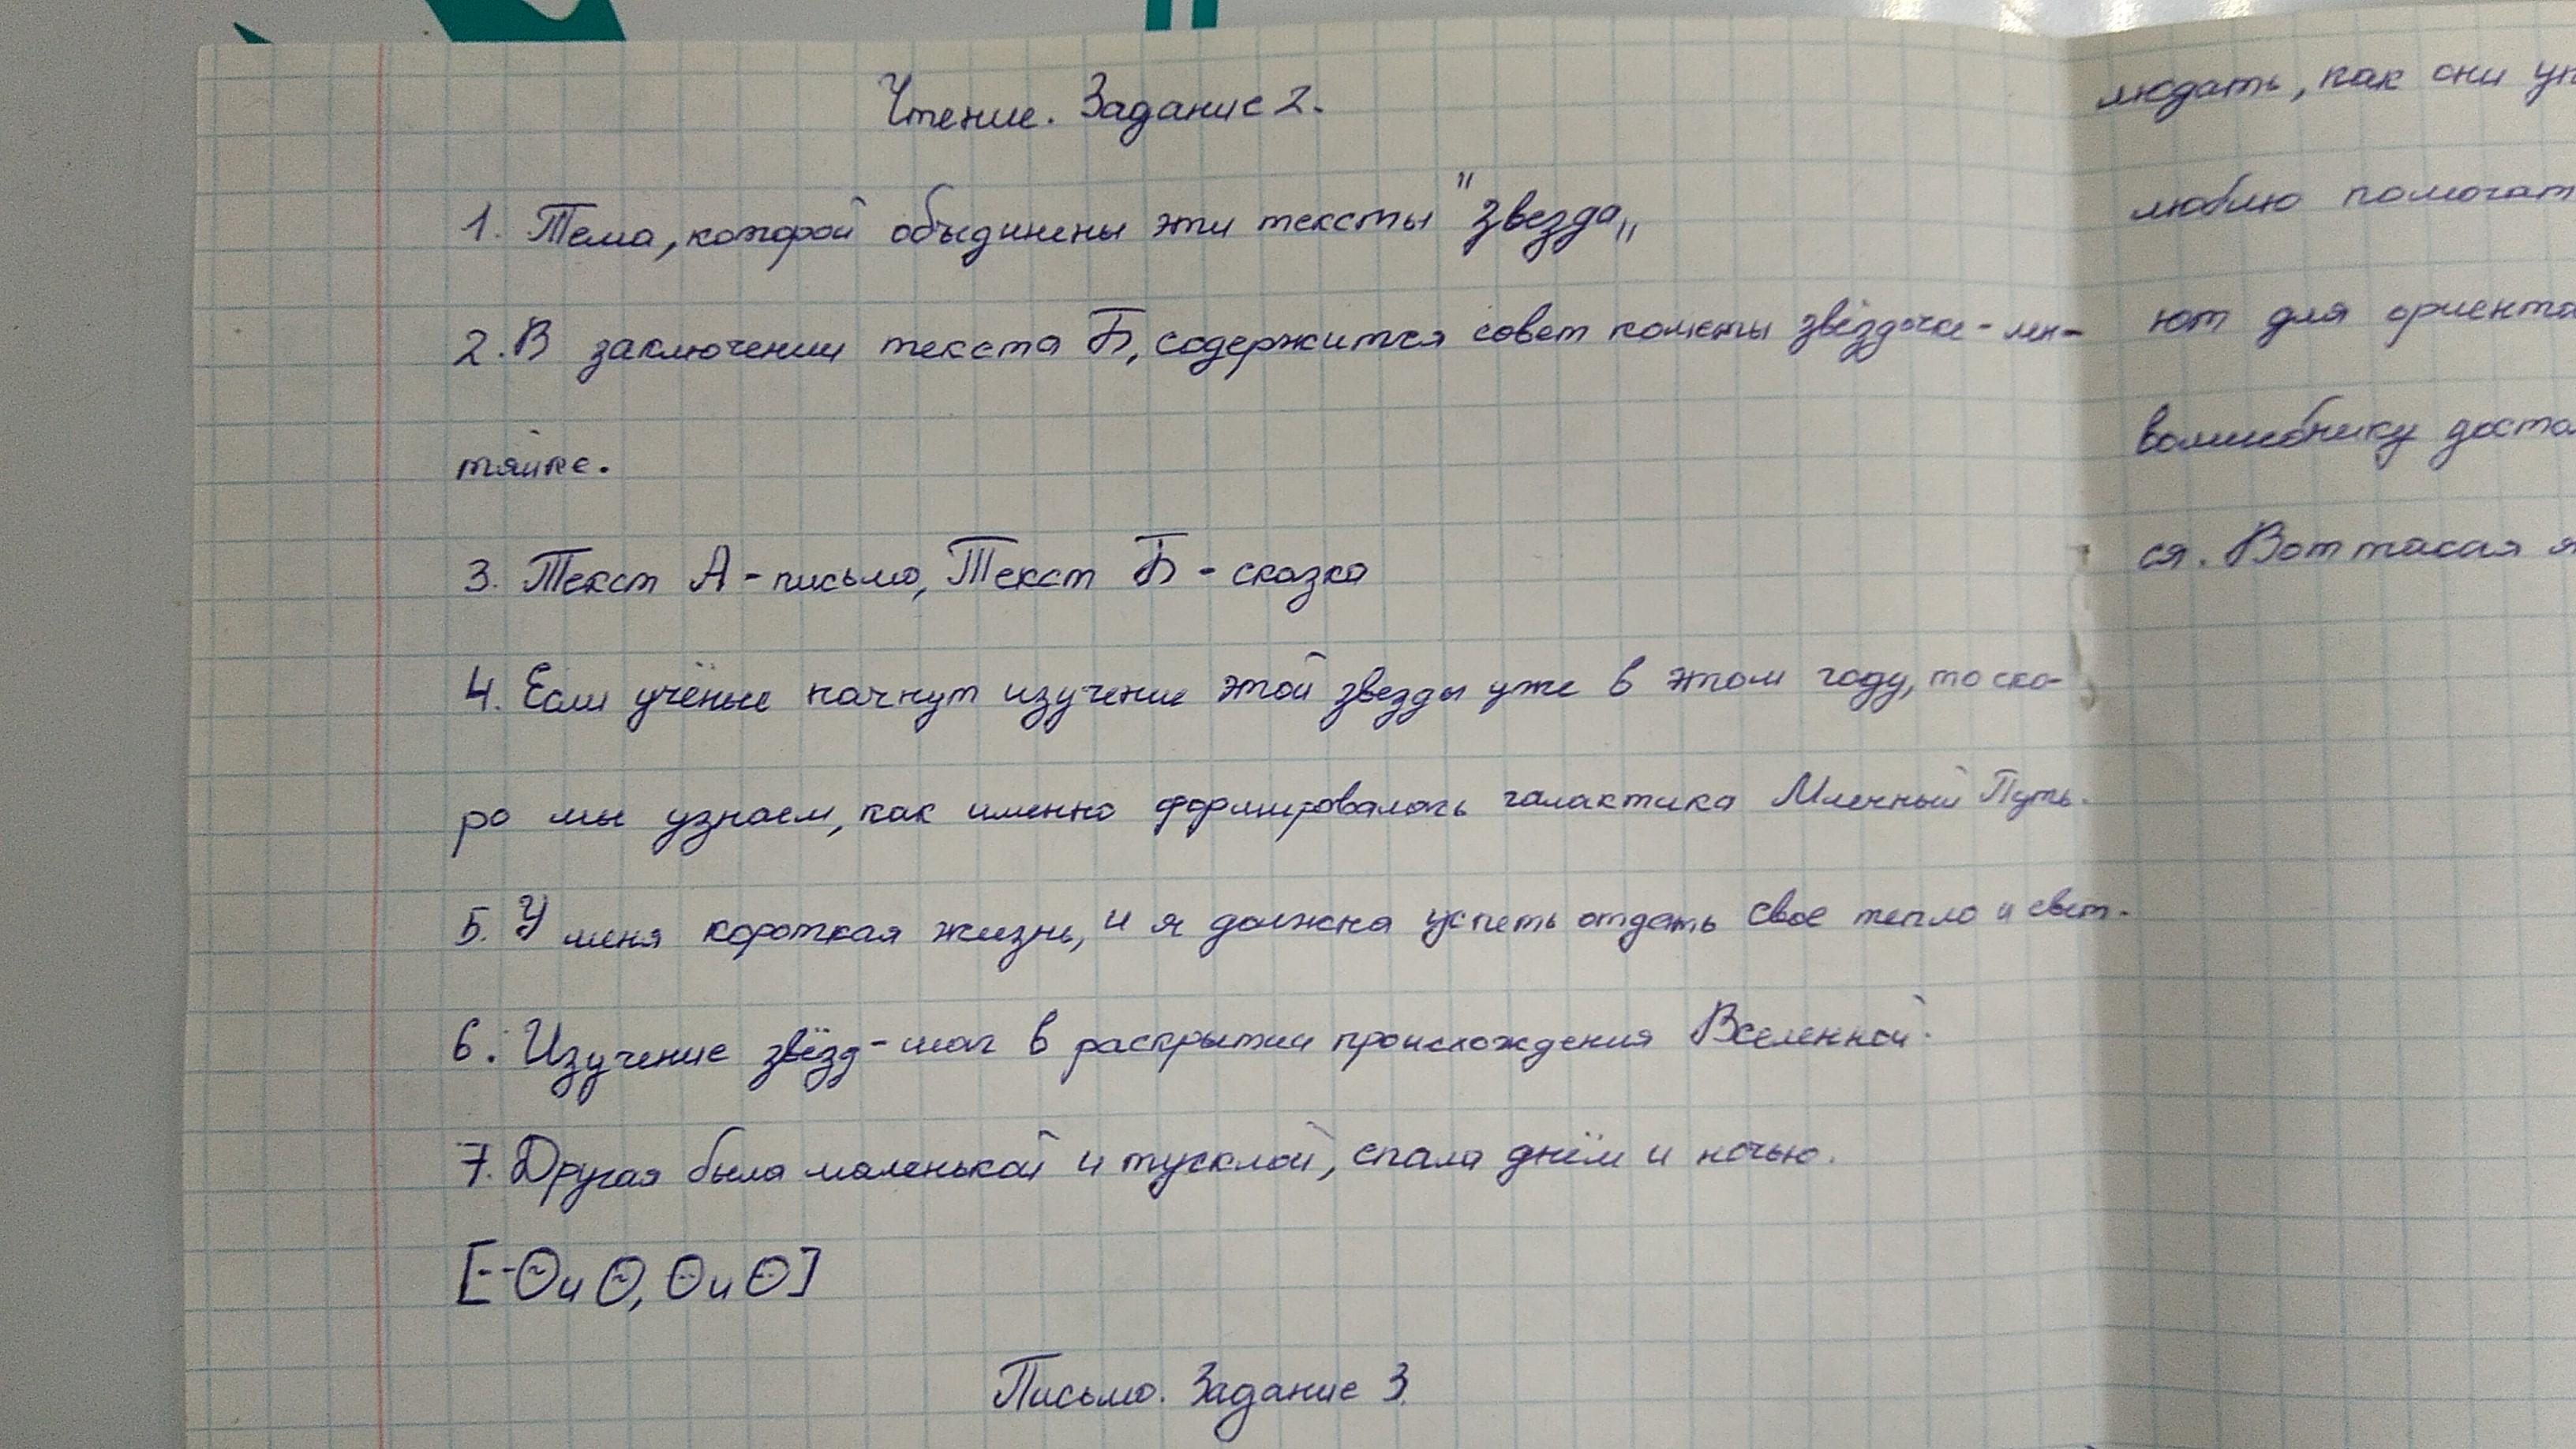 Чтение. Задание 2.
1. Тема, которой объединены эти тексты "звезда"
2. В заключении текста Б, содержится совет кометы звёздочке-лен-
тяйке.
3. Текст А - письмо, Текст Б - сказка
4. Если учёные начнут изучение этой звезды уже в этом году, то ско-
ро мы узнаем, как именно формировалась галактика Млечный Путь.
5. У меня короткая жизнь, и я должна успеть отдать свое тепло и свет.
6. Изучение звёзд - шаг в раскрытии происхождения Вселенной.
7. Другая была маленькой и тусклой, спала днём и ночью.
Письмо. Задание 3.
людать, как они
люблю помогат
ют для ориента
волшебнику доста
ся. Вот такая я